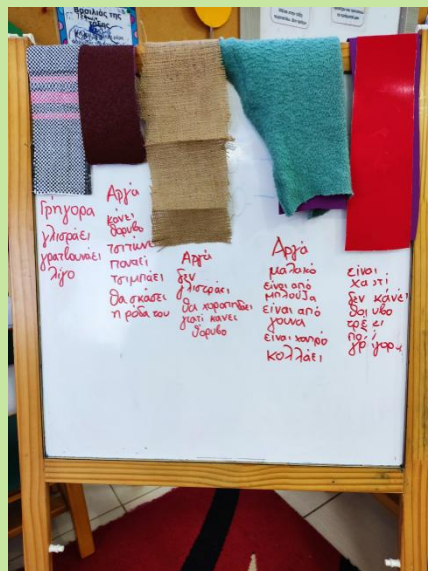 Βασιλιάς της
τάξης
Γρήγορα
γλιστράει
γρατζουνάει
λίγο
Αργά
κάνει
θόρυβο
πατάει
τσιμπάει
θα σκάσει
η ρόδα του
Αργά
δεν
γλιστράει
θα χοροπηδάει
γιατί κάνει
θόρυβο
Αργά
μαλακό
είναι από
μπλούζα
είναι από
γούνα
είναι χοντρό
κολλάει
είναι
χαρτί
δεν κάνει
θόρυβο
τρέχει
πολύ
γρήγορα